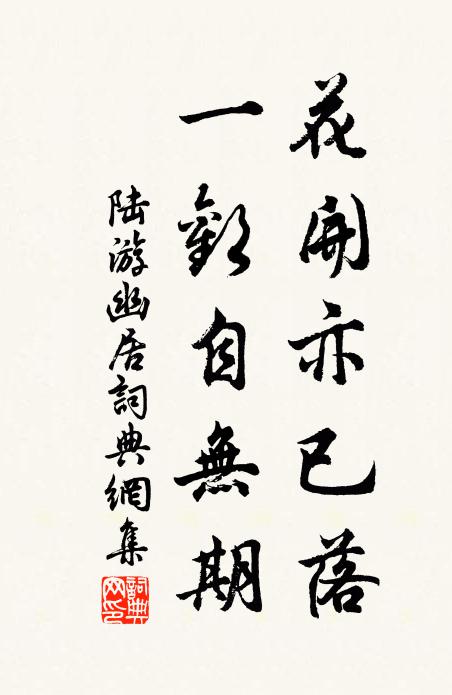 花開亦已落
一歡自無期
陸游幽居詞典網集
詞典網印